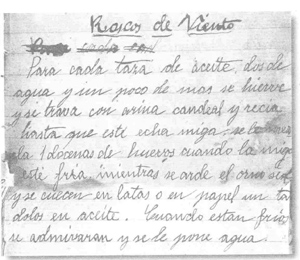 Roscos de Viento
Para cada taza de aceite dos de
agua y un poco de mas se hierve
y se trava con arina candeal y recia
hasta que esté echa miga, se le
la 1 docenas de huevos cuando la miga
esté fria mientras se arde el orno
y se cuecen en latas o en papel un
dolos en aceite. Cuando estan frios
se admivaran y se le pone agua